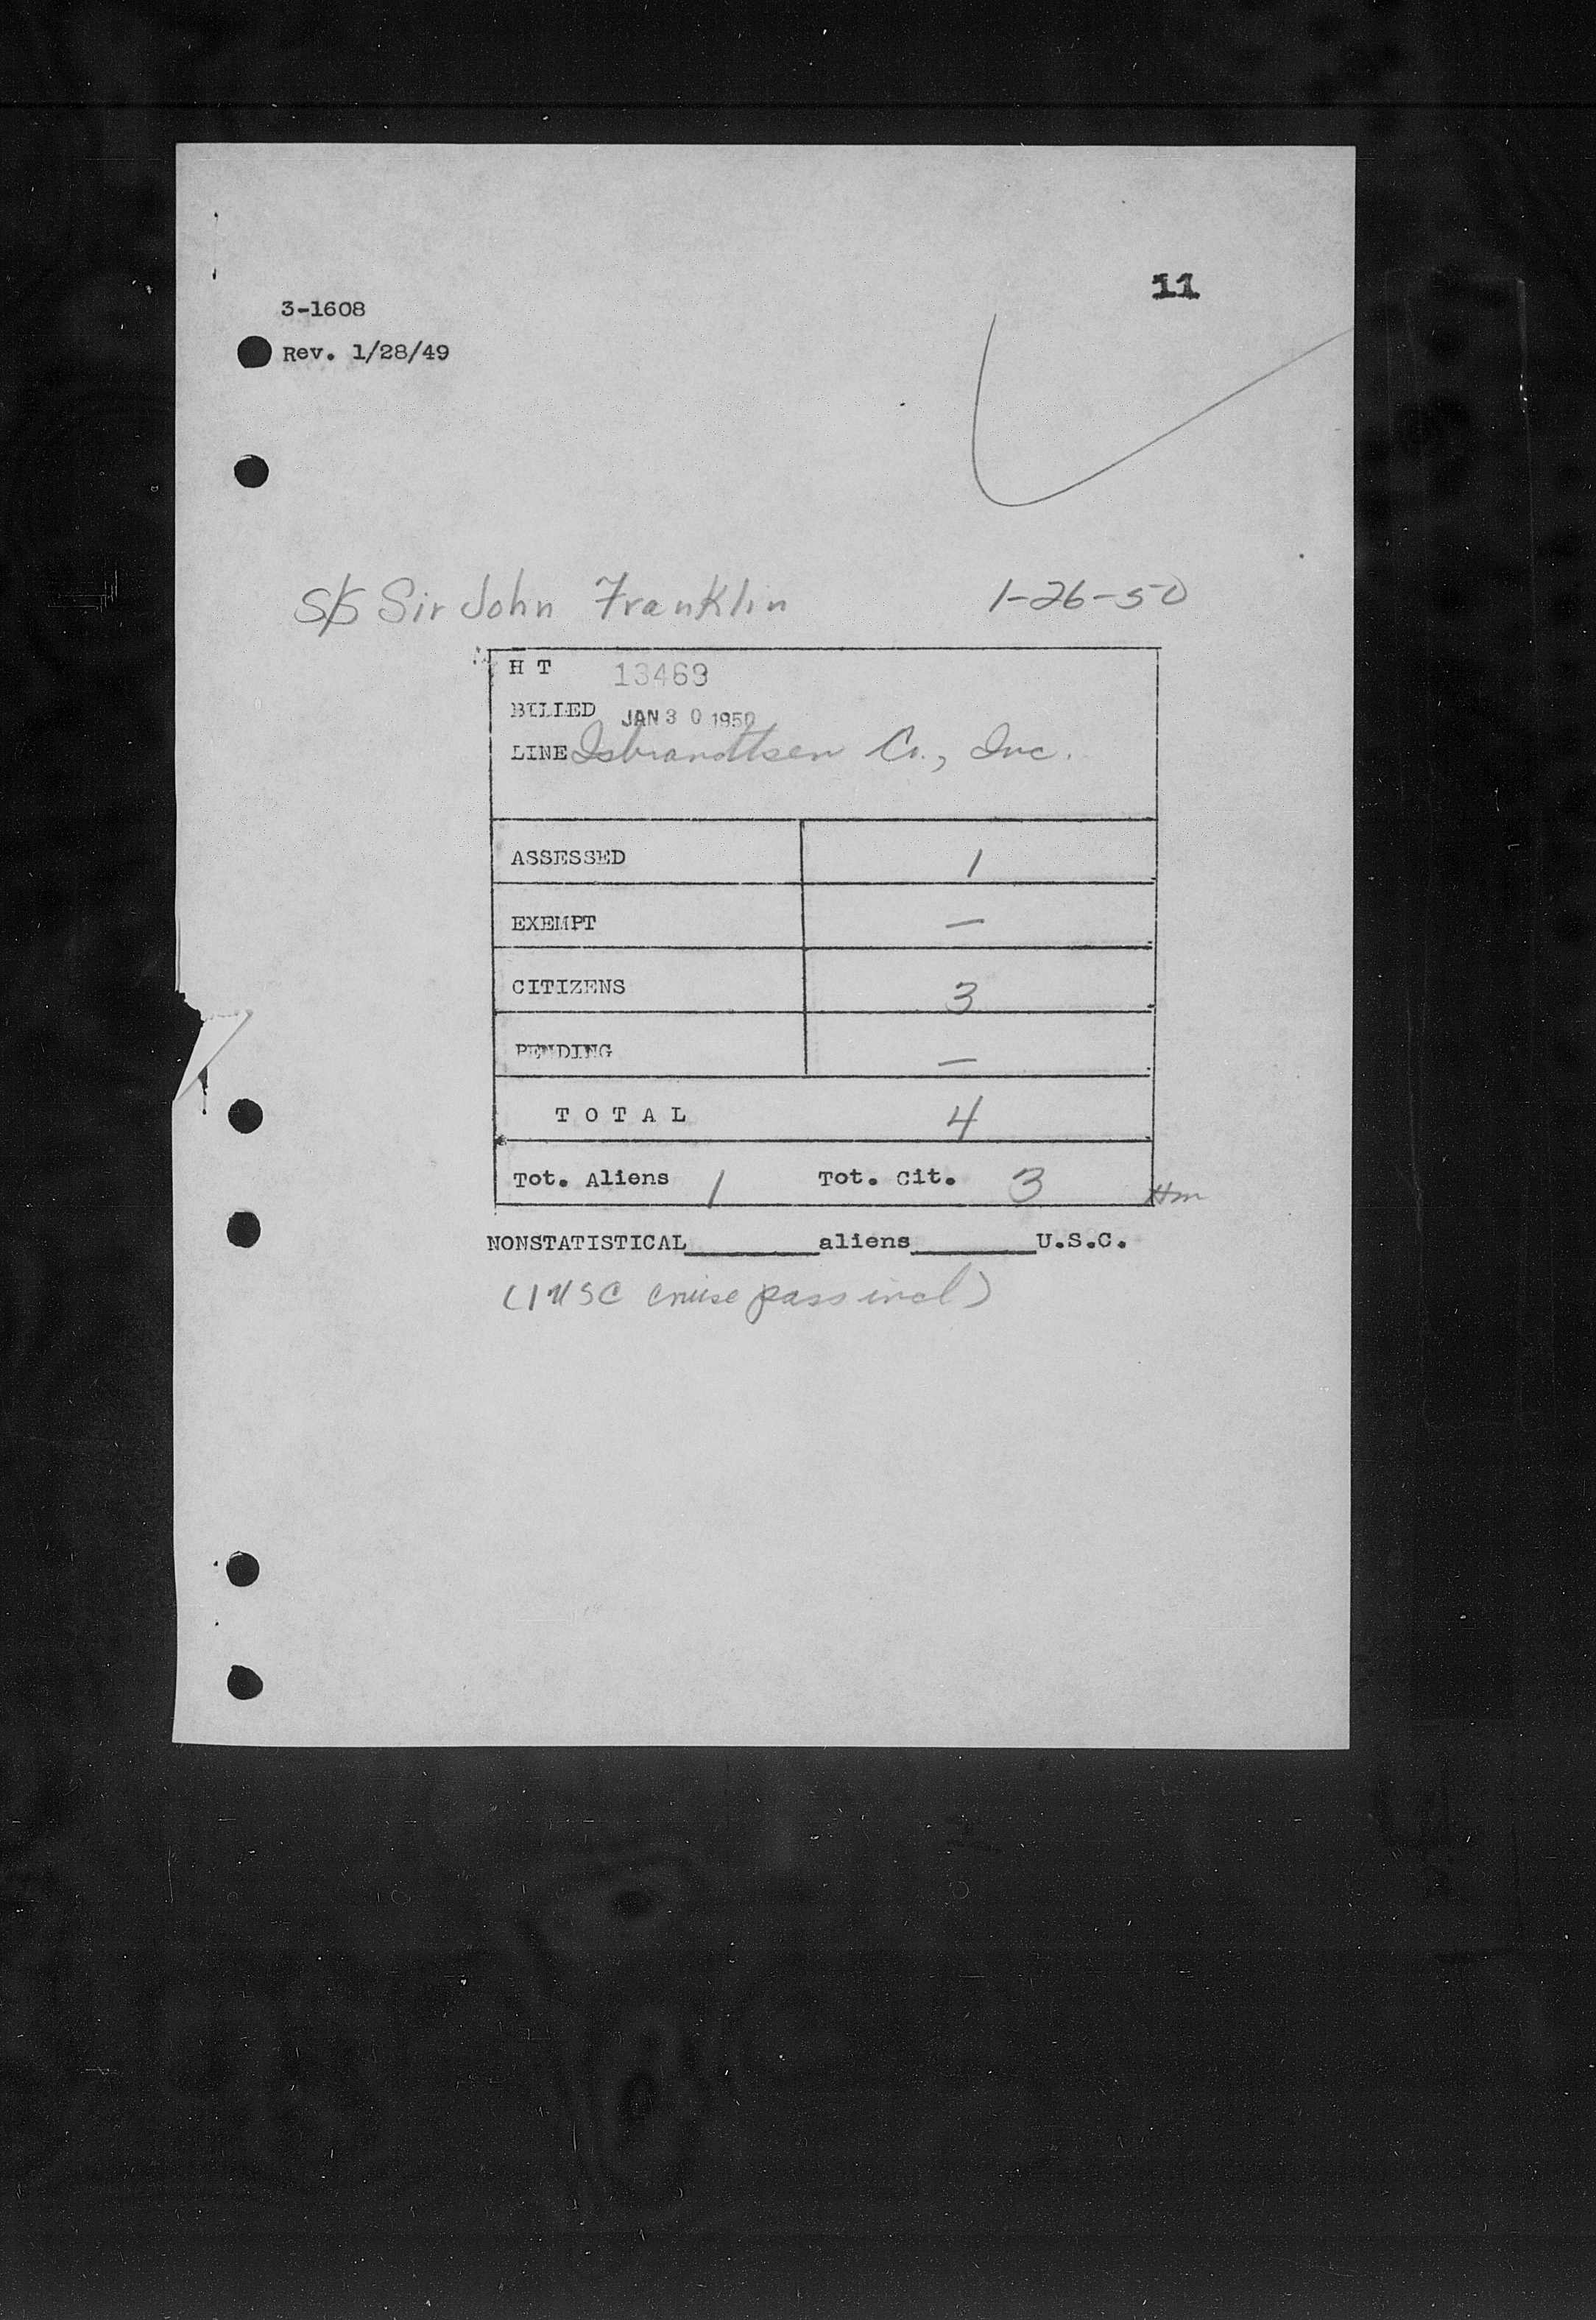 11
3-1608
Rev. 1/28/49
S/S Sir John Franklin 1-26-50
H T 13469
BILLED JAN 30 1950
LINE Isbrandtsen Co., Inc.
ASSESSED 1
EXEMPT —
CITIZENS 3
PENDING —
T O T A L 4
Tot. Aliens 1 Tot. Cit. 3 Hm
NONSTATISTICAL________aliens________U.S.C.
(1 USC cruise pass incl)